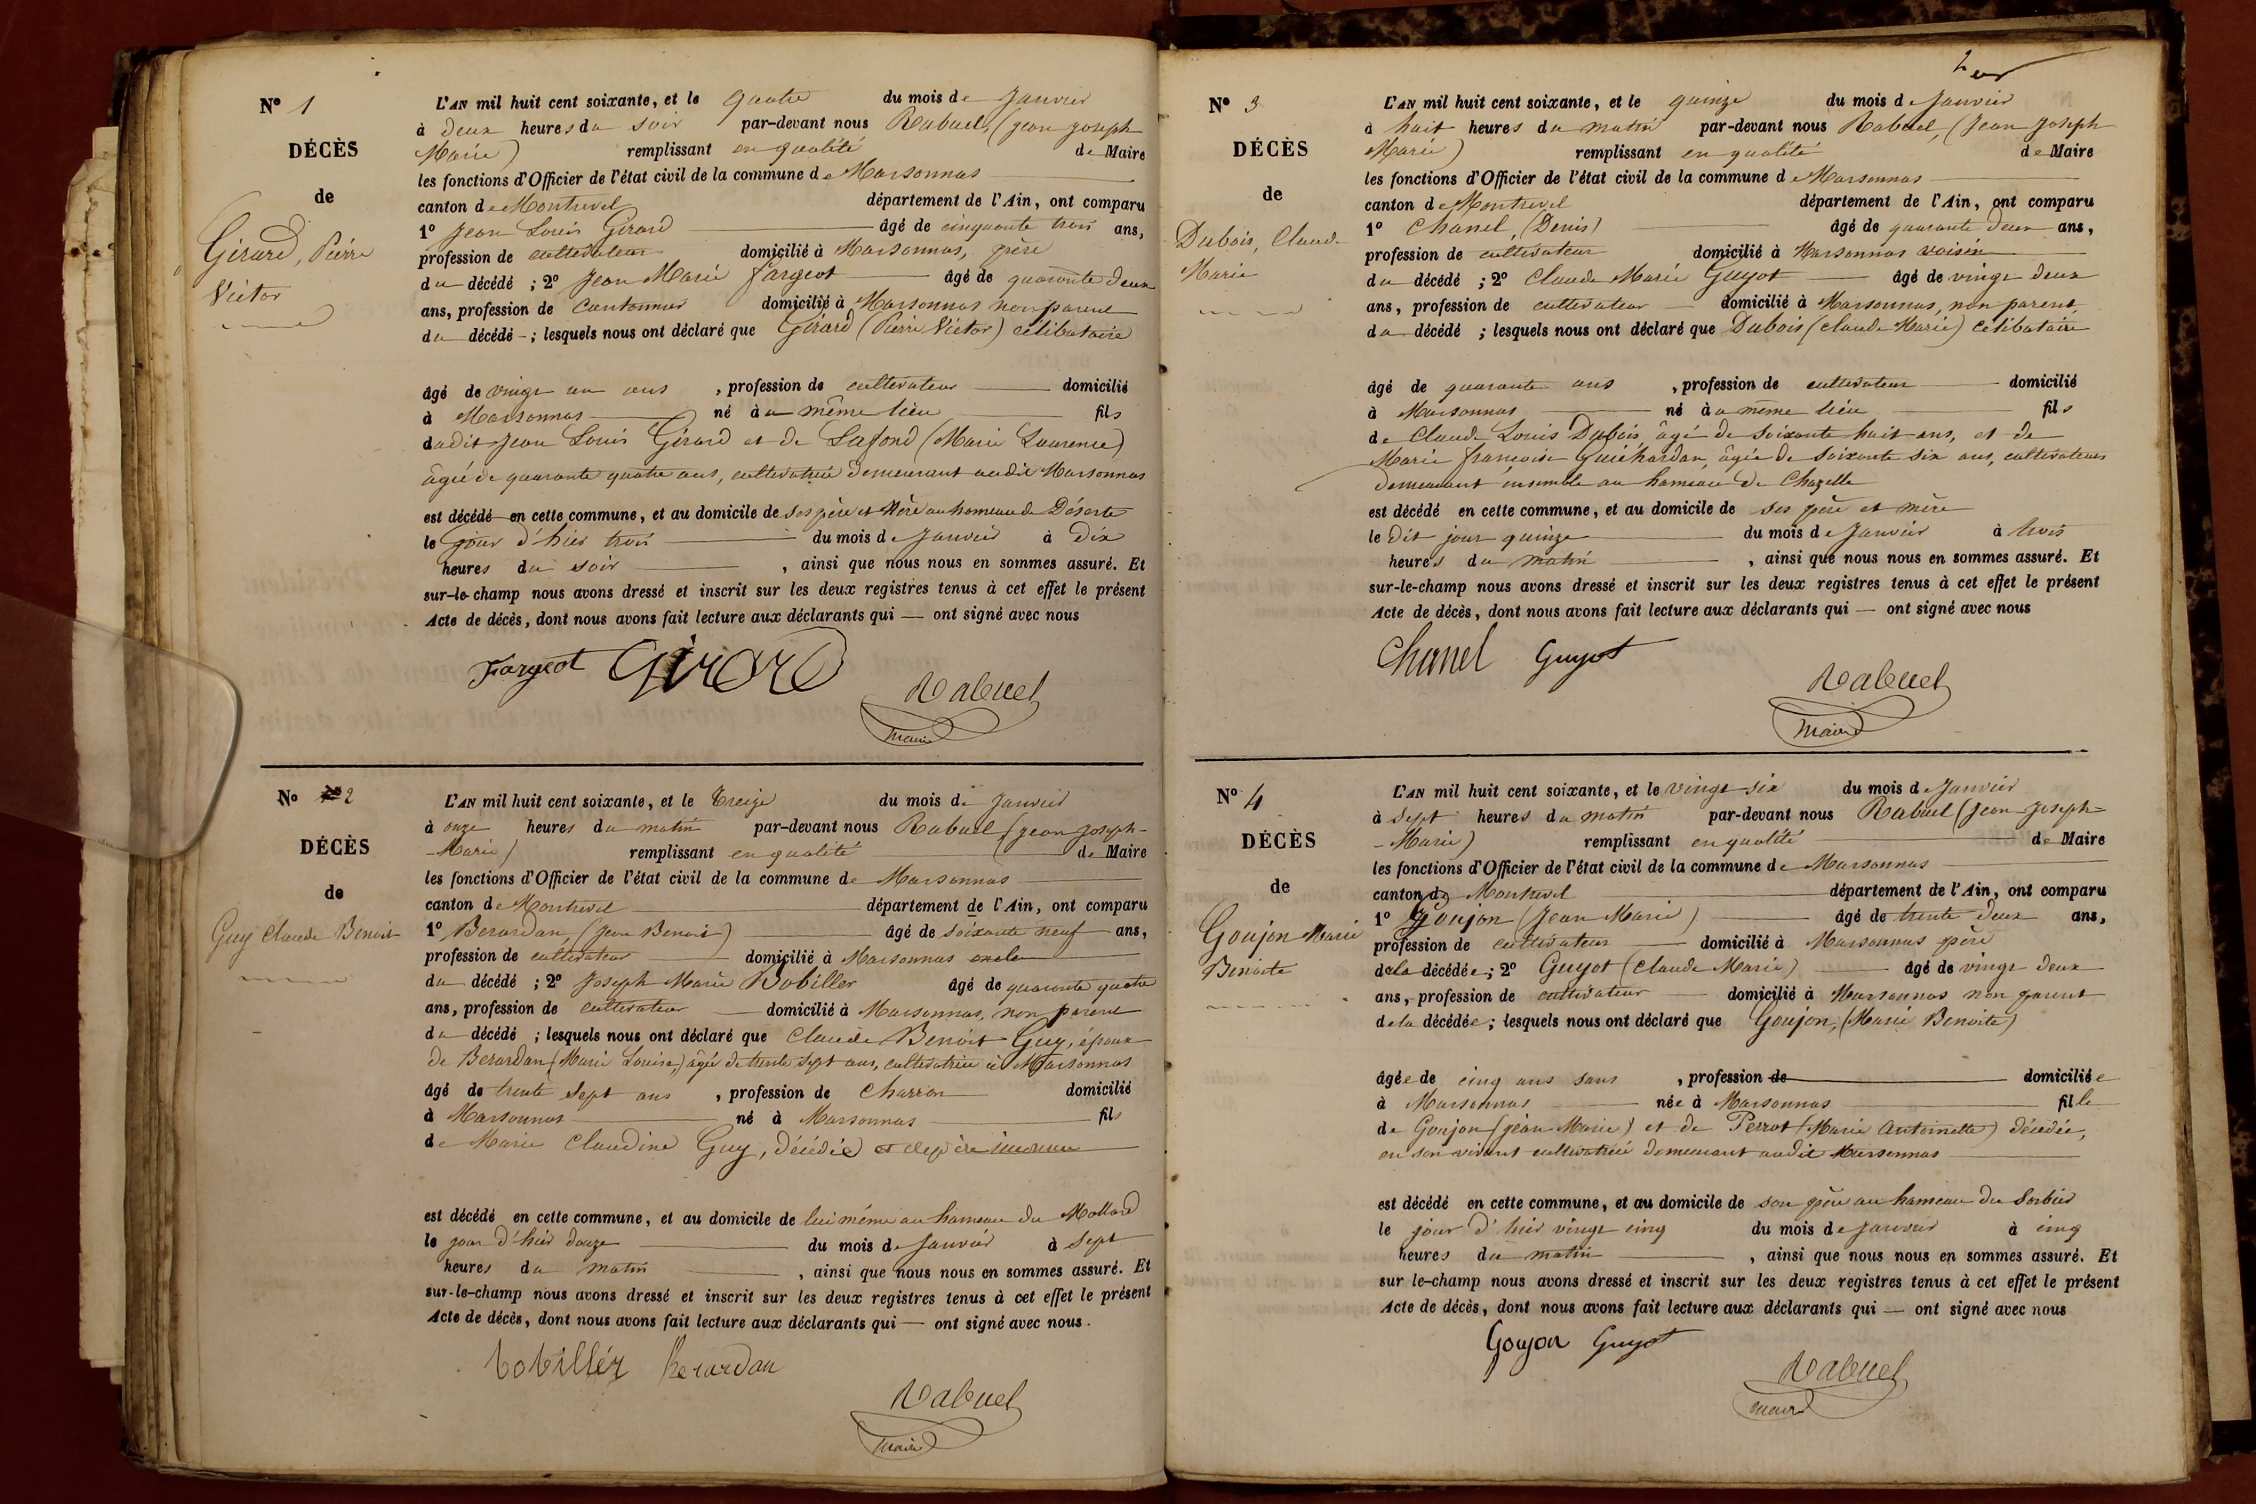 N° 1
DÉCÈS
de
Girard, Pierre
Victor
L'AN mil huit cent soixante, et le quatre du mois de Janvier
à deux heures du soir par-devant nous Rabuel, (Jean Joseph
Marie) remplissant en qualité de Maire
les fonctions d'Officier de l'état civil de la commune de Marsonnas
canton de Montrevel département de l'Ain, ont comparu
1° Jean Louis Girard âgé de cinquante trois ans,
profession de cultivateur domicilié à Marsonnas, père
du décédé ; 2° Jean Marie Fargeot âgé de quarante deux
ans, profession de Cantonnier domicilié à Marsonnas non parent
du décédé ; lesquels nous ont déclaré que Girard (Pierre Victor) célibataire
âgé de vingt un ans , profession de cultivateur domicilié
à Marsonnas né à u même lieu fils
dudit Jean Louis Girard et de Lafond (Marie Laurence)
âgée de quarante quatre ans, cultivatrice demeurant audit Marsonnas
est décédé en cette commune, et au domicile de ses père et Mère au hameau de Déserte
le jour d'hier trois du mois de Janvier à Dix
heures du soir , ainsi que nous nous en sommes assuré. Et
sur-le-champ nous avons dressé et inscrit sur les deux registres tenus à cet effet le présent
Acte de décès, dont nous avons fait lecture aux déclarants qui — ont signé avec nous
Fargeot Girard
Rabuel
Maire
N° 2
DÉCÈS
de
Guy Claude Benoit
L'AN mil huit cent soixante, et le treize du mois de Janvier
à onze heures du matin par-devant nous Rabuel (Jean Joseph-
-Marie) remplissant en qualité de Maire
les fonctions d'Officier de l'état civil de la commune de Marsonnas
canton de Montrevel département de l'Ain, ont comparu
1° Berardan, (Jean Benoit) âgé de soixante neuf ans,
profession de cultivateur domicilié à Marsonnas oncle
du décédé ; 2° Joseph Marie Bobiller âgé de quarante quatre
ans, profession de cultivateur domicilié à Marsonnas, non parent
du décédé ; lesquels nous ont déclaré que Claude Benoit Guy, époux
de Berardan (Marie Louise) âgée de trente sept ans, cultivatrice à Marsonnas
âgé de trente sept ans , profession de Charron domicilié
à Marsonnas né à Marsonnas fils
de Marie Claudine Guy, décédée et de père inconnu
est décédé en cette commune, et au domicile de lui même au hameau du Mollard
le jour d'hier douze du mois de Janvier à Sept
heures du matin , ainsi que nous nous en sommes assuré. Et
sur-le-champ nous avons dressé et inscrit sur les deux registres tenus à cet effet le présent
Acte de décès, dont nous avons fait lecture aux déclarants qui — ont signé avec nous.
bobiller berardan
Rabuel
Maire
N° 3
DÉCÈS
de
Dubois, Claude
Marie
L'AN mil huit cent soixante, et le quinze du mois de Janvier
à huit heures du matin par-devant nous Rabuel, (Jean Joseph
Marie) remplissant en qualité de Maire
les fonctions d'Officier de l'état civil de la commune de Marsonnas
canton de Montrevel département de l'Ain, ont comparu
1° Chanel, (Denis) âgé de quarante deux ans,
profession de cultivateur domicilié à Marsonnas voisin
du décédé ; 2° Claude Marie Guyot âgé de vingt deux
ans, profession de cultivateur domicilié à Marsonnas, non parent,
du décédé ; lesquels nous ont déclaré que Dubois (Claude Marie) célibataire
âgé de quarante ans , profession de cultivateur domicilié
à Marsonnas né à u même lieu fils
de Claude Louis Dubois, âgé de soixante huit ans, et de
Marie françoise Guichardan, âgée de soixante six ans, cultivateurs
demeurant ensemble au hameau de Chazelle
est décédé en cette commune, et au domicile de ses père et mère
le dit jour quinze du mois de Janvier à trois
heures du matin , ainsi que nous nous en sommes assuré. Et
sur-le-champ nous avons dressé et inscrit sur les deux registres tenus à cet effet le présent
Acte de décès, dont nous avons fait lecture aux déclarants qui — ont signé avec nous
Chanel Guyot
Rabuel
Maire
N° 4
DÉCÈS
de
Goujon Marie
Benoite
L'AN mil huit cent soixante, et le vingt six du mois de Janvier
à Sept heures du matin par-devant nous Rabuel (Jean Joseph=
-Marie) remplissant en qualité de Maire
les fonctions d'Officier de l'état civil de la commune de Marsonnas
canton de Montrevel département de l'Ain, ont comparu
1° Goujon (Jean Marie) âgé de trente deux ans,
profession de cultivateur domicilié à Marsonnas père
de la décédée ; 2° Guyot (Claude Marie) âgé de vingt deux
ans, profession de cultivateur domicilié à Marsonnas non parent
de la décédée ; lesquels nous ont déclaré que Goujon, (Marie Benoite)
âgée de cinq ans sans , profession de domiciliée
à Marsonnas née à Marsonnas fille
de Goujon (Jean Marie) et de Perrot (Marie Antoinette) décédée,
en son vivant cultivatrice demeurant audit Marsonnas
est décédé en cette commune, et au domicile de son père au hameau du Sorbier
le jour d'hier vingt cinq du mois de Janvier à cinq
heures du matin , ainsi que nous nous en sommes assuré. Et
sur le-champ nous avons dressé et inscrit sur les deux registres tenus à cet effet le présent
Acte de décès, dont nous avons fait lecture aux déclarants qui — ont signé avec nous
Goujon Guyot
Rabuel
Maire